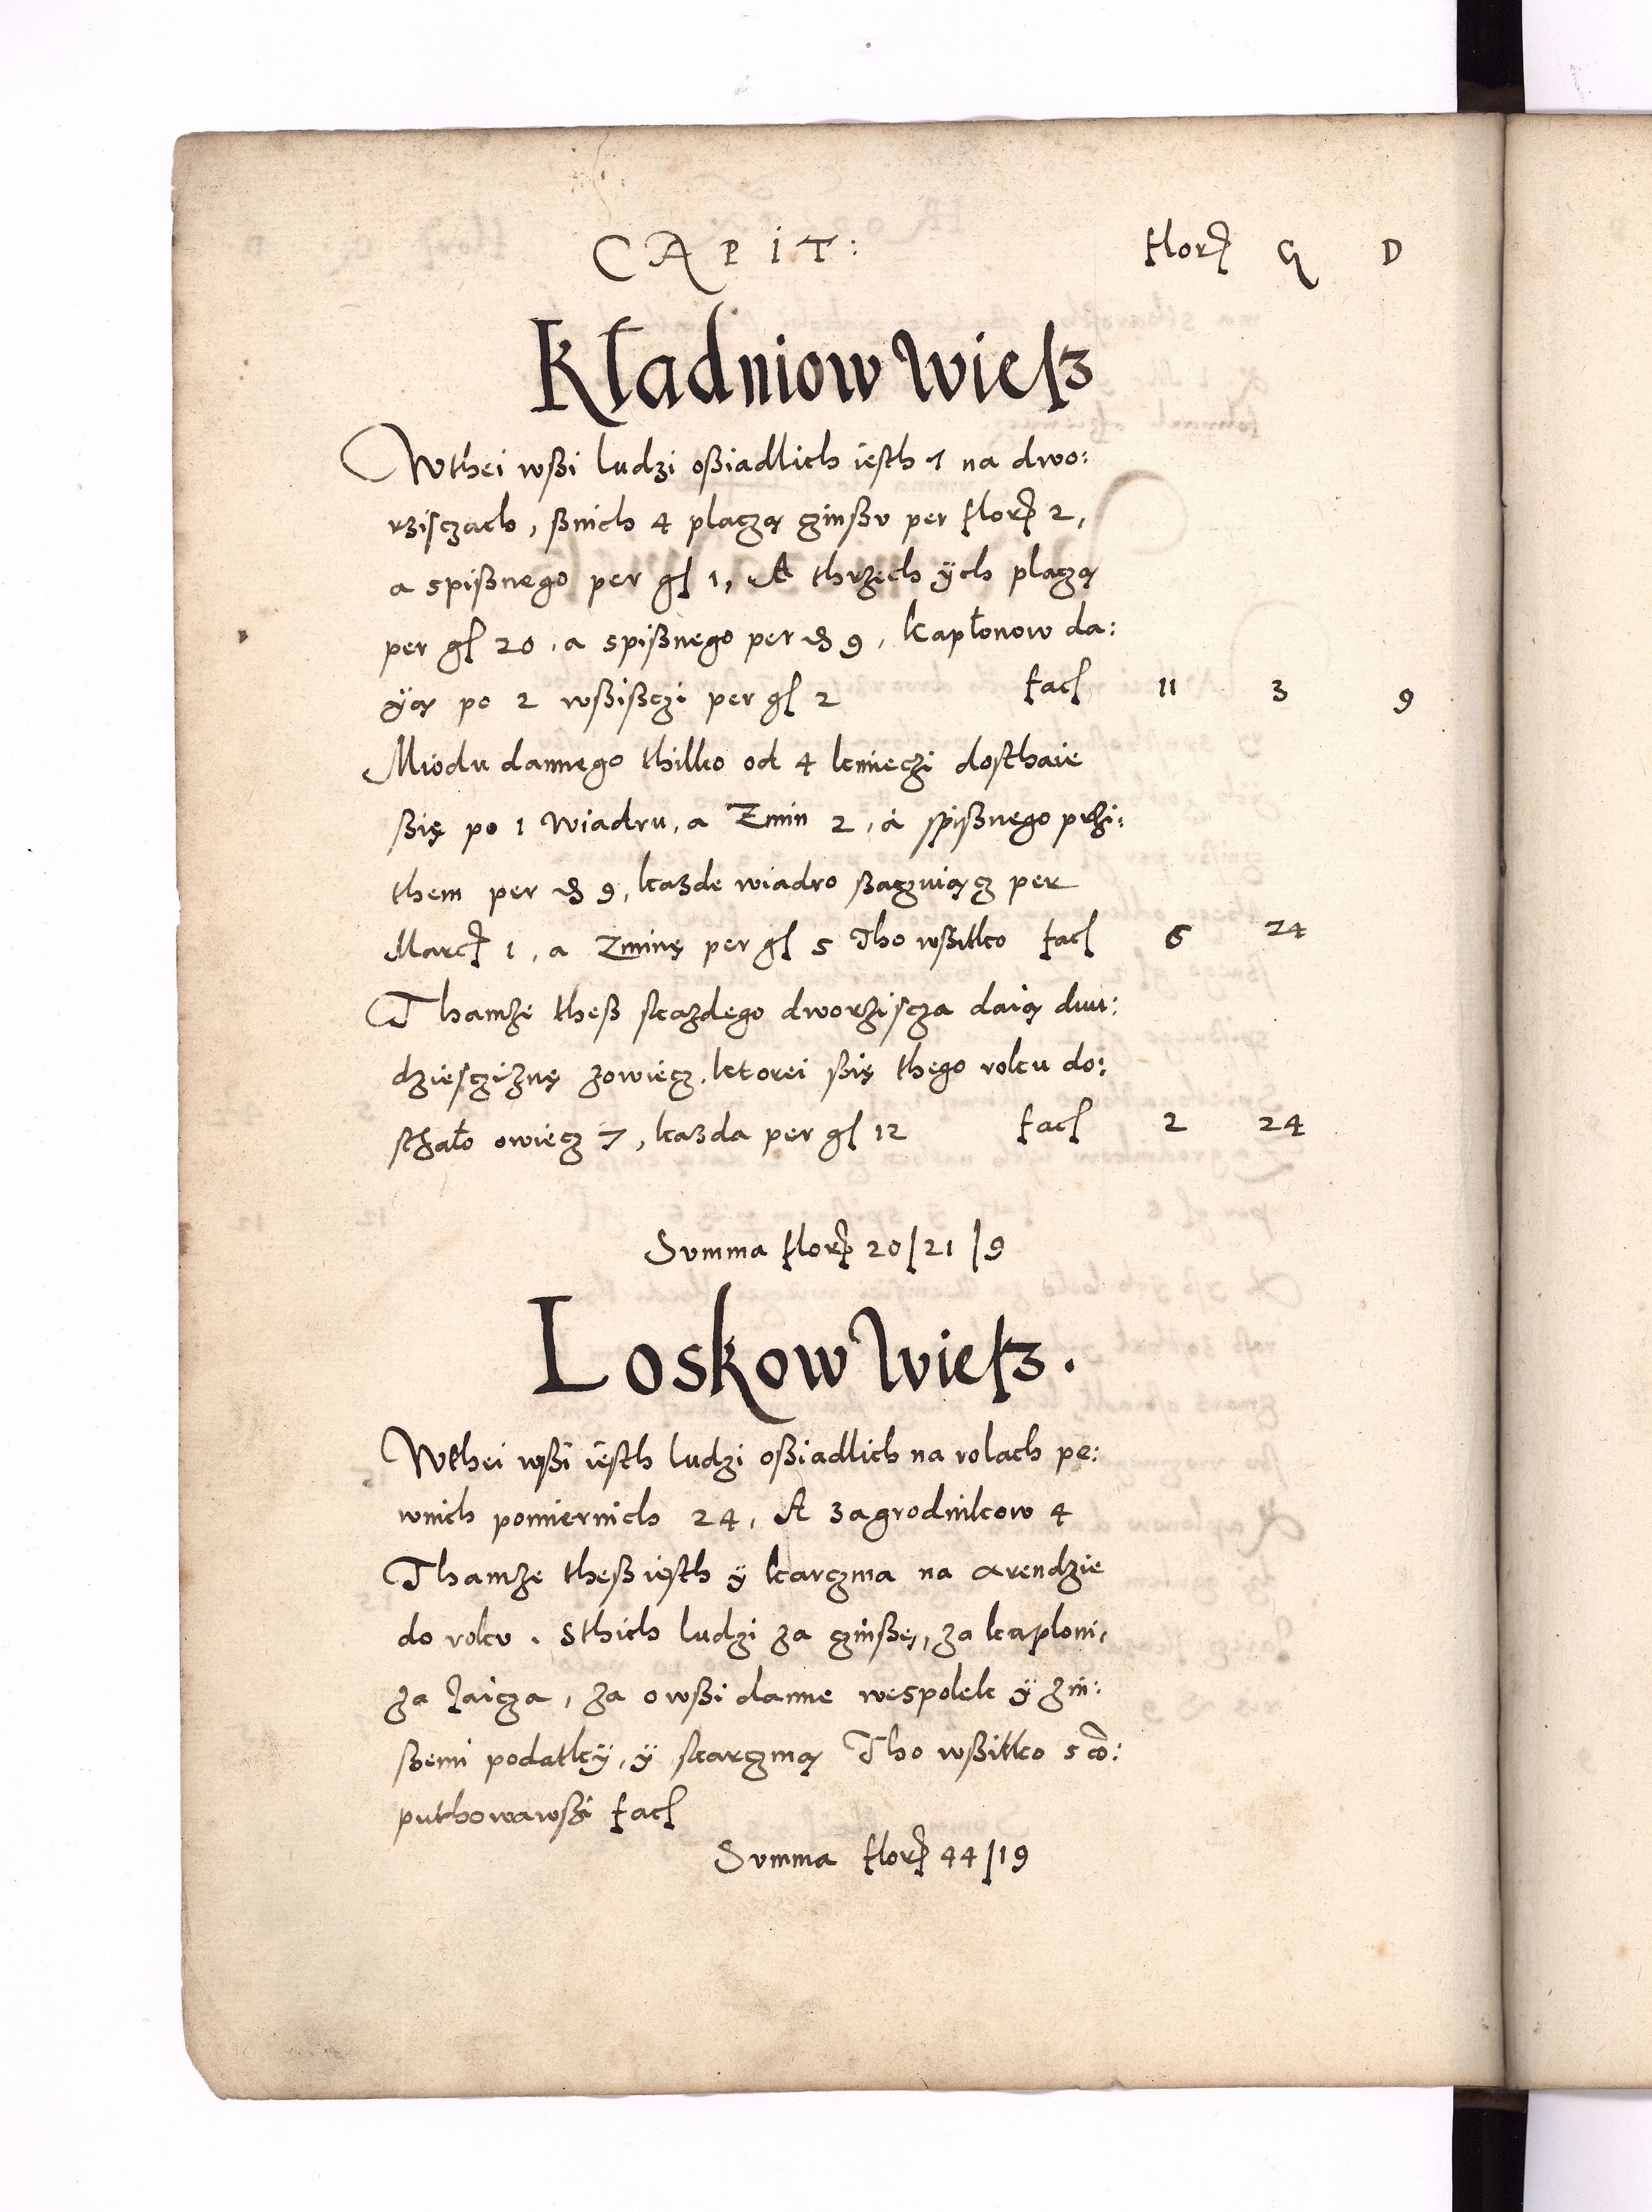 CAPIT: flor G D
Kładniow Wiesz
Wthei wßi ludzi oßiadlich iesth 7 na dwo:
rzisczach, ßnich 4 placzą czinßu per flor 2,
a spißnego per gl 1, A thrzech ych placzą
per gl 20, a spißnego per d 9, kapłonow da:
yą po 2 wßißczi per gl 2 facl 11 3 9
Miodu dannego thilko od 4 kmieczi dosthaie
ßię po 1 Wiadru, a Zmin 2, a spißnego przi:
them per d 9, kazde wiadro ßaczuiącz per
March 1, a Zminę per gl 5 Tho wßitko facl 6 24
Thamze theß skazdego dworziscza daią dwu:
dziescziznę zowiecz, ktorei ßię thego roku do:
sthało owiecz 7, kazda per gl 12 facl 2 24
Summa flor 20/21/9
Loskow Wiesz.
Wthei wßi iesth ludzi oßiadlich na rolach pe:
wnich pomiernich 24, A zagrodnikow 4
Thamze theß iesth ÿ karczma na arendzie
do roku. Sthich ludzi za czinßę, za kaploni,
za Jaicza, za owßi danne wespolek ÿ zin:
ßemi podatkÿ, ÿ skarczmą Tho wßitko sco:
puthowawßi facl
Summa flor 44/19